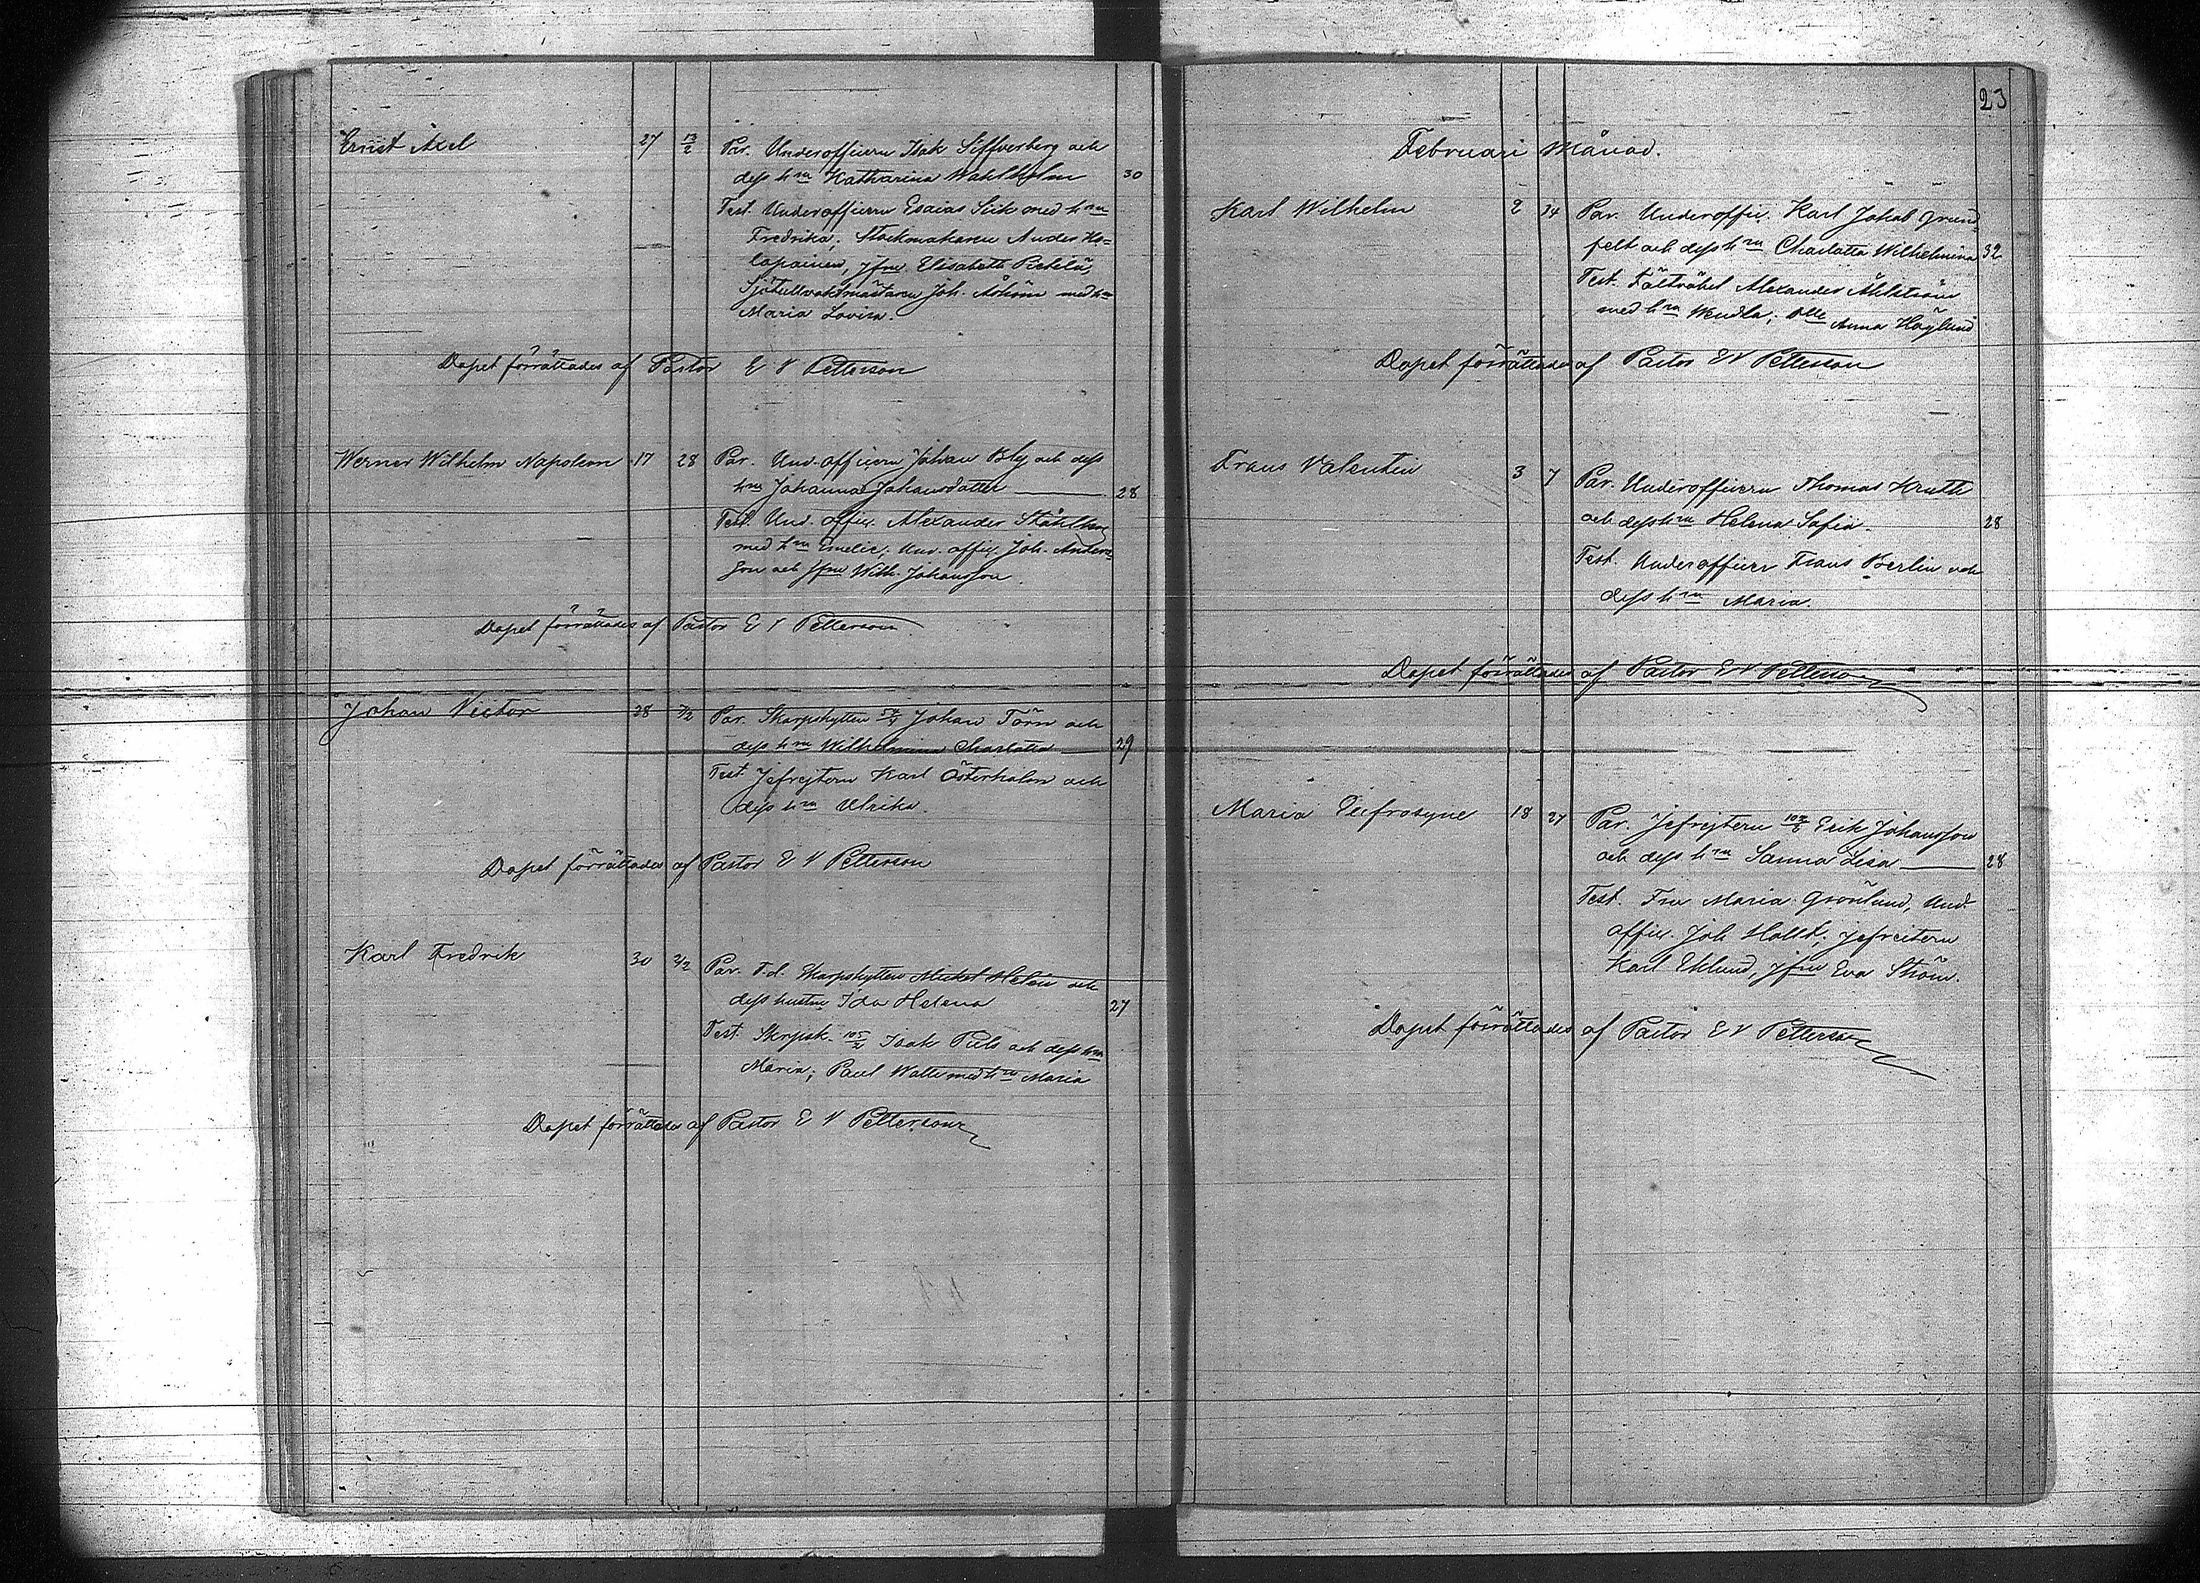 Ernst Axel 27 13/2 Par. Underofficern Isak Silfverberg och
dess h:u Katharina Wahlholm 30
Test. Underofficern Esaias Siik med h:u
Fredrika; Stockmakaren Anders Ho-
lapainen, jfru Elisabeth
Sjötullvaktmästaren Joh. med h:u
Maria Lovisa.
Dopet förrättades af Pastor E V Petterson
Werner Wilhelm Napoleon 17 28 Par. Und. officern Johan Bly och dess
h:u Johanna Johansdotter 28
Test. Und. offic. Alexander Ståhlberg
med h:u Emelie; Und. offic. Joh. Anders-
son och jfru Wilh. Johansson.
Dopet förrättades af Pastor E V Petterson
Johan Victor 28 7/2 Par. Skarpskytten Johan Törn och
dess h:u Wilhelmina Charlotta 29
Test. Jefrejtern Karl Österholm och
dess h:u Ulrika.
Dopet förrättades af Pastor E V Petterson
Karl Fredrik 30 2/2 Par. F.d. Skarpskytten Mickel Helin och
dess hustru Ida Helena 27
Test. Skrpsk. Isak Pils och dess h:u
Maria; Paul med h:u Maria
Dopet förrättades af Pastor E V Petterson
23
Februari Månad.
Karl Wilhelm 2 24 Par. Underoffic. Karl Jakob Grund-
felt och dess h:u Charlotta Wilhelmina 32
Test. Fältväbel Alexander Åhlström
med h:u Wendla; Anna Höglund
Dopet förrättades af Pastor E V Petterson
Frans Valentin 3 7 Par. Underofficern Thomas Kruth
och dess h:u Helena Sofia. 28
Test. Underofficer Frans Berlin och
dess h:u Maria.
Dopet förrättades af Pastor E V Petterson
Maria Eufrosyne 18 27 Par. Jefrejtern Erik Johansson
och dess h:u Sanna Lisa 28
Test. Fru Maria Grönlund, Und.
offic. Joh Hollst; jefreitern
Karl Eklund, jfru Eva Ström.
Dopet förrättades af Pastor E V Petterson